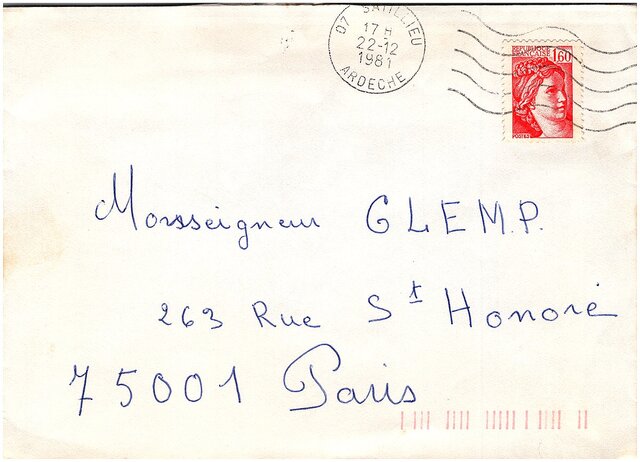 07 SATILLIEU
17 H
22-12
1981
ARDECHE
REPUBLIQUE
FRANCAISE
1,60
POSTES
Monsseigneur GLEMP.
263 Rue St Honoré
75001 Paris